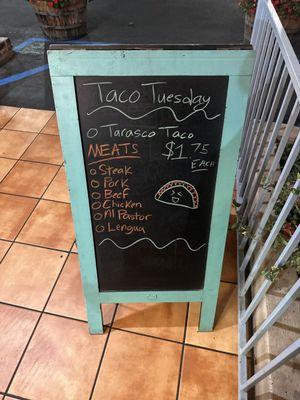 Taco Tuesday
Tarasco Taco
MEATS $1.75
EACH
Steak
Pork
Beef
Chicken
Al Pastor
Lengua